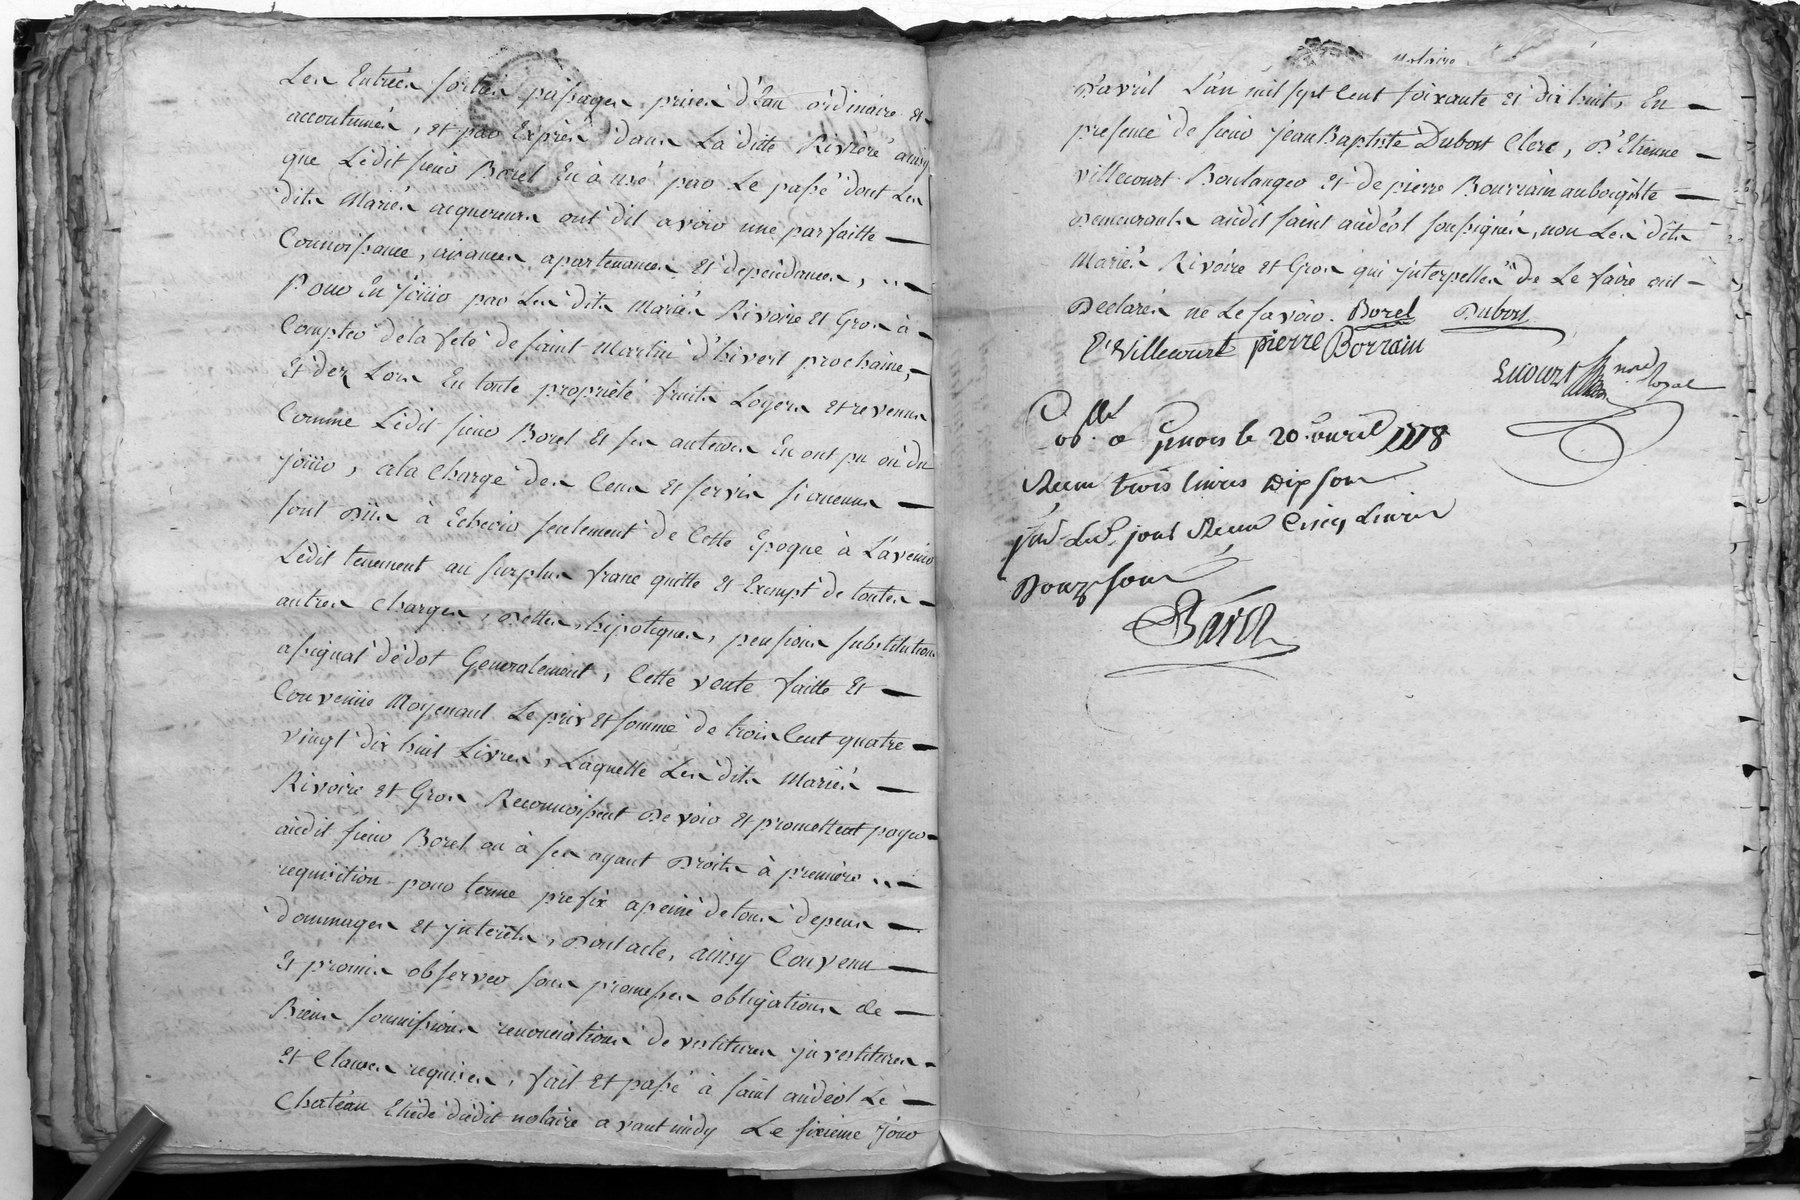 Les Entrées sorties passages, prises d'Eau ordinaires et
accoutumés, et par Exprès dans La ditte Riviere ainsy
que Ledit sieur Borel En a usé par Le passé dont Les
dits Mariés acquereurs ont dit avoir une parfaitte
Connoissance, aisances apartenances et dependances,
Pour En joüir par Les dits Mariés Rivoire et Gros à
Compter de la fete de saint Martin d'hivert prochaine,
Et dez Lors En toute propriété fruits Loyers et revenus
Comme Ledit sieur Borel Et ses auteurs En ont pu ou du
joüir, a la Charge des Cens et servis si aucuns
sont Dûs à Echeoir seulement de Cette Epoque à L'avenir
Ledit tenement au surplus franc quitte et Exempt de toutes
autres Charges, Dettes, hipoteques, pensions substitutions
assignat dedot Generalement, Cette vente faitte Et
Convenüe Moyenant Le prix et somme de trois Cent quatre
vingt dix huit Livres, Laquelle Les dits Mariés
Rivoire et Gros Reconnoissent Devoir et promettent payer
audit sieur Borel ou à ses ayant Droits à premiere
requisition pour terme prefix a peine de tous depens
dommages et jnterets, Dont acte, ainsy Convenu
Et promis observer sous promesses obligations de
Biens soumissions renonciations de vestitures jnvestitures
et Clauses requises, fait et passé à saint andéol Le
Château Etude dudit notaire avant midy Le sixieme jour
notaire
D'avril L'an mil sept Cent soixante et dix huit, En
presence de sieur jean Baptiste Dubost Clerc, D'Etienne
villecourt Boulanger et de pierre Bourrain aubergiste
Demeurants audit saint andéol soussignés, non Les dits
Mariés Rivoire et Gros qui jnterpellés de Le faire ont
Declarés ne Le savoir. Borel Dubost
E Villecourt pierre Borrain
royal
a Givors le 20 avril 1778
Recu trois livres Dix sous
jour Recu Cinq Livres
Douze sous